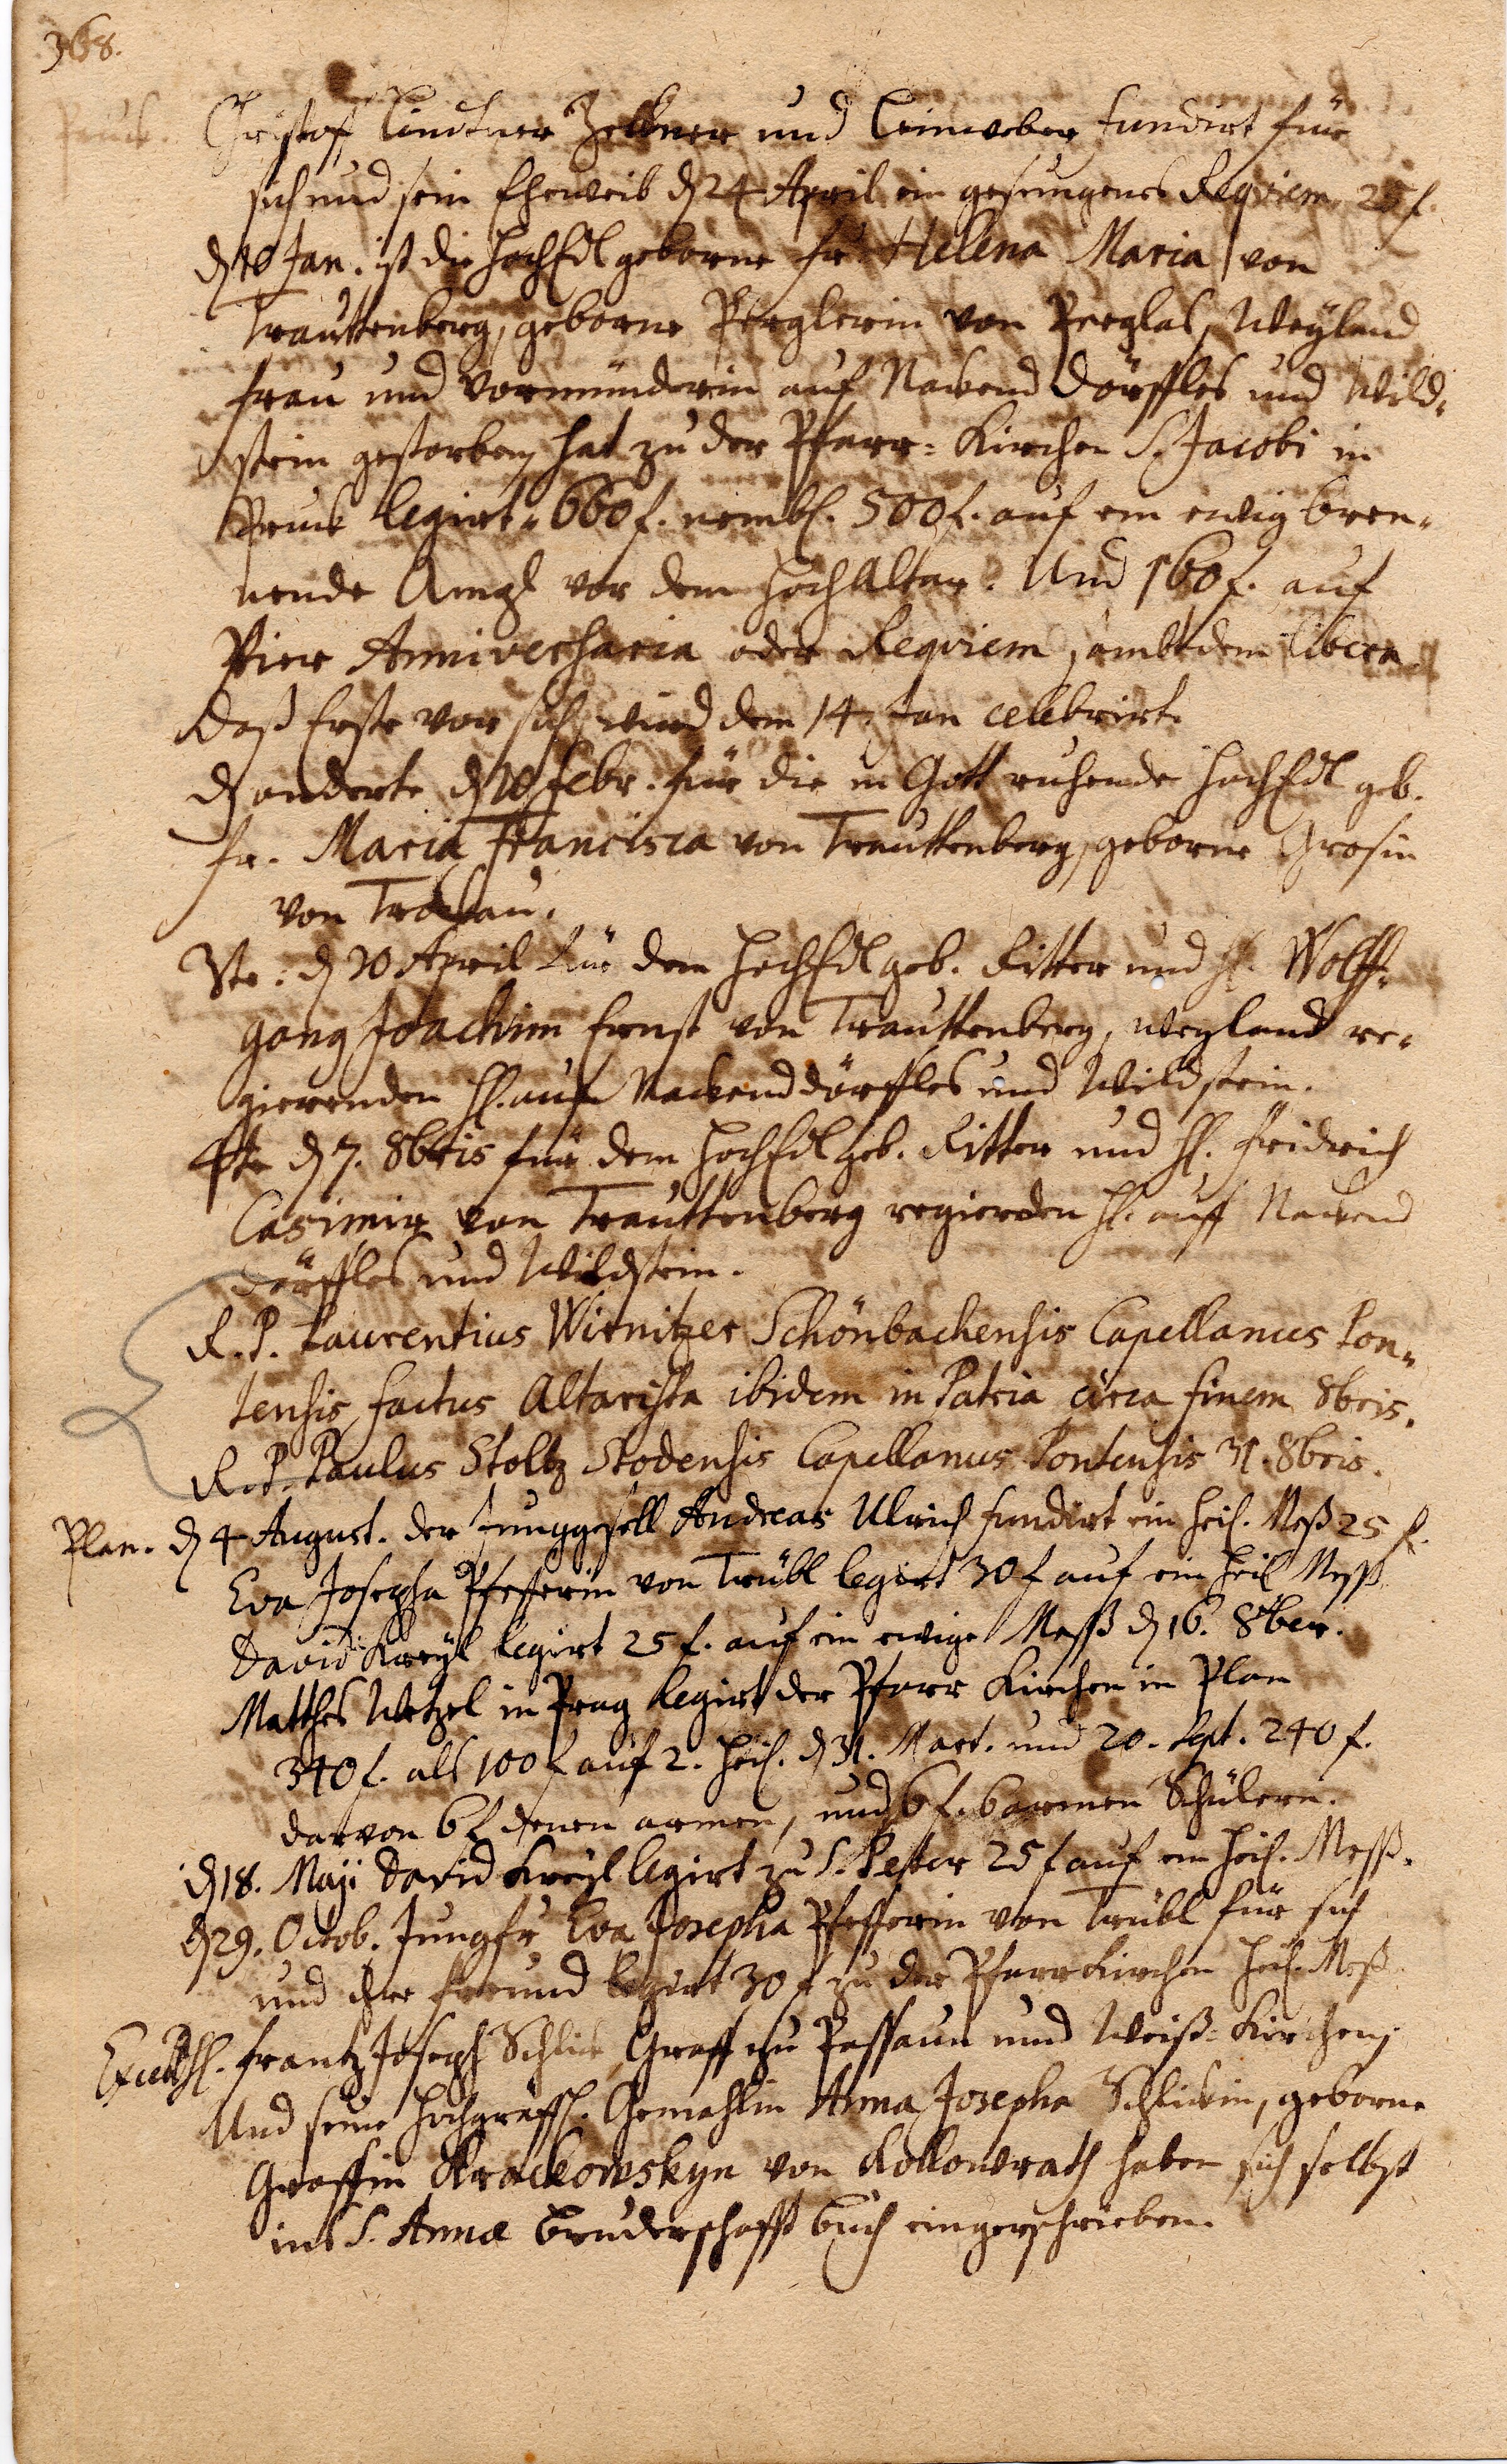 368.
Pruck. Christoff Lindtner Zelkner und Leinweber fundirt für
sich und sein Eheweib d 24 April ein gesungenes Requiem 25 f.
d 10 Jan. ist die HochEdl geborne Fr. Helena Maria von
Trauttenberg, geborne Perglerin von Perglas, Weyland
Frau und Vormünderin auf Nackend Dörffles und Wild-
stein gestorben, hat zu der Pfarr-Kirchen S. Jacobi in
Pruck legirt 660 f. nembl. 500 f. auf ein ewig bren-
nende Ampl vor dem Hoch Altar. Und 160 f. auf
Vier Anniversaria oder Requiem, sambt dem libera
Daß Erste vor sich, wird den 14 Jan celebrirt.
d anderte d 10 Febr. für die in Gott ruhende HochEdl geb.
Fr. Maria Francisca von Trauttenberg, geborne Grosin
von Trockau.
3te: d 20 April für dem HochEdl geb. Ritter und H. Wolff-
gang Joachim Ernst von Trauttenberg, weyland re-
gierenden H. auf Nackenddörffles und Wildstein.
4te d 7. 8bris für dem HochEdl geb. Ritter und H. Fridrich
Casimir von Trauttenberg regierden H. auff Nackend
dörffles und Wildstein.
R. P. Laurentius Wirnitzer Schönbachensis Capellanus Pon-
tensis, factus Altarista ibidem in Patria circa finem 8bris.
R. P. Paulus Stoltz Stodensis Capellanus Pontensis 31. 8bris.
Plan. d 4 August. der Junggesell Andreas Ulrich fundirt ein heil. Meß 25 f.
Eva Josepha Pfefferin von Trübl legirt 30 f auf ein heil Meß
David Kreyl legirt 25 f. auf ein ewige Meß d 16. 8ber.
Matthes Wetzel in Prag legirt der Pfarr Kirchen in Plan
340 f. als 100 f auf 2. heil. d 31. Mart. und 20. Sept. 240 f.
darvon 6 f denen armen, und 6 f. 6 armen Schülern.
d 18. Maji David Kreyl legirt zu S. Peter 25 f auf ein heil. Meß.
d 29. Octob. Jungfr Eva Josepha Pfefferin von Trübl für sich
und ihre Freund legirt 30 f zu der Pfarr Kirchen heil. Meß
H. Frantz Joseph Schlick, Graff zu Passaun und Weiß-Kirchen,
Und seine Hochgräffl. Gemahlin Anna Josepha Schlickin, geborne
Graffin Krackowskyn von Kollowrath haben sich selbst
ins S. Annæ Bruderschafft buch eingeschrieben.